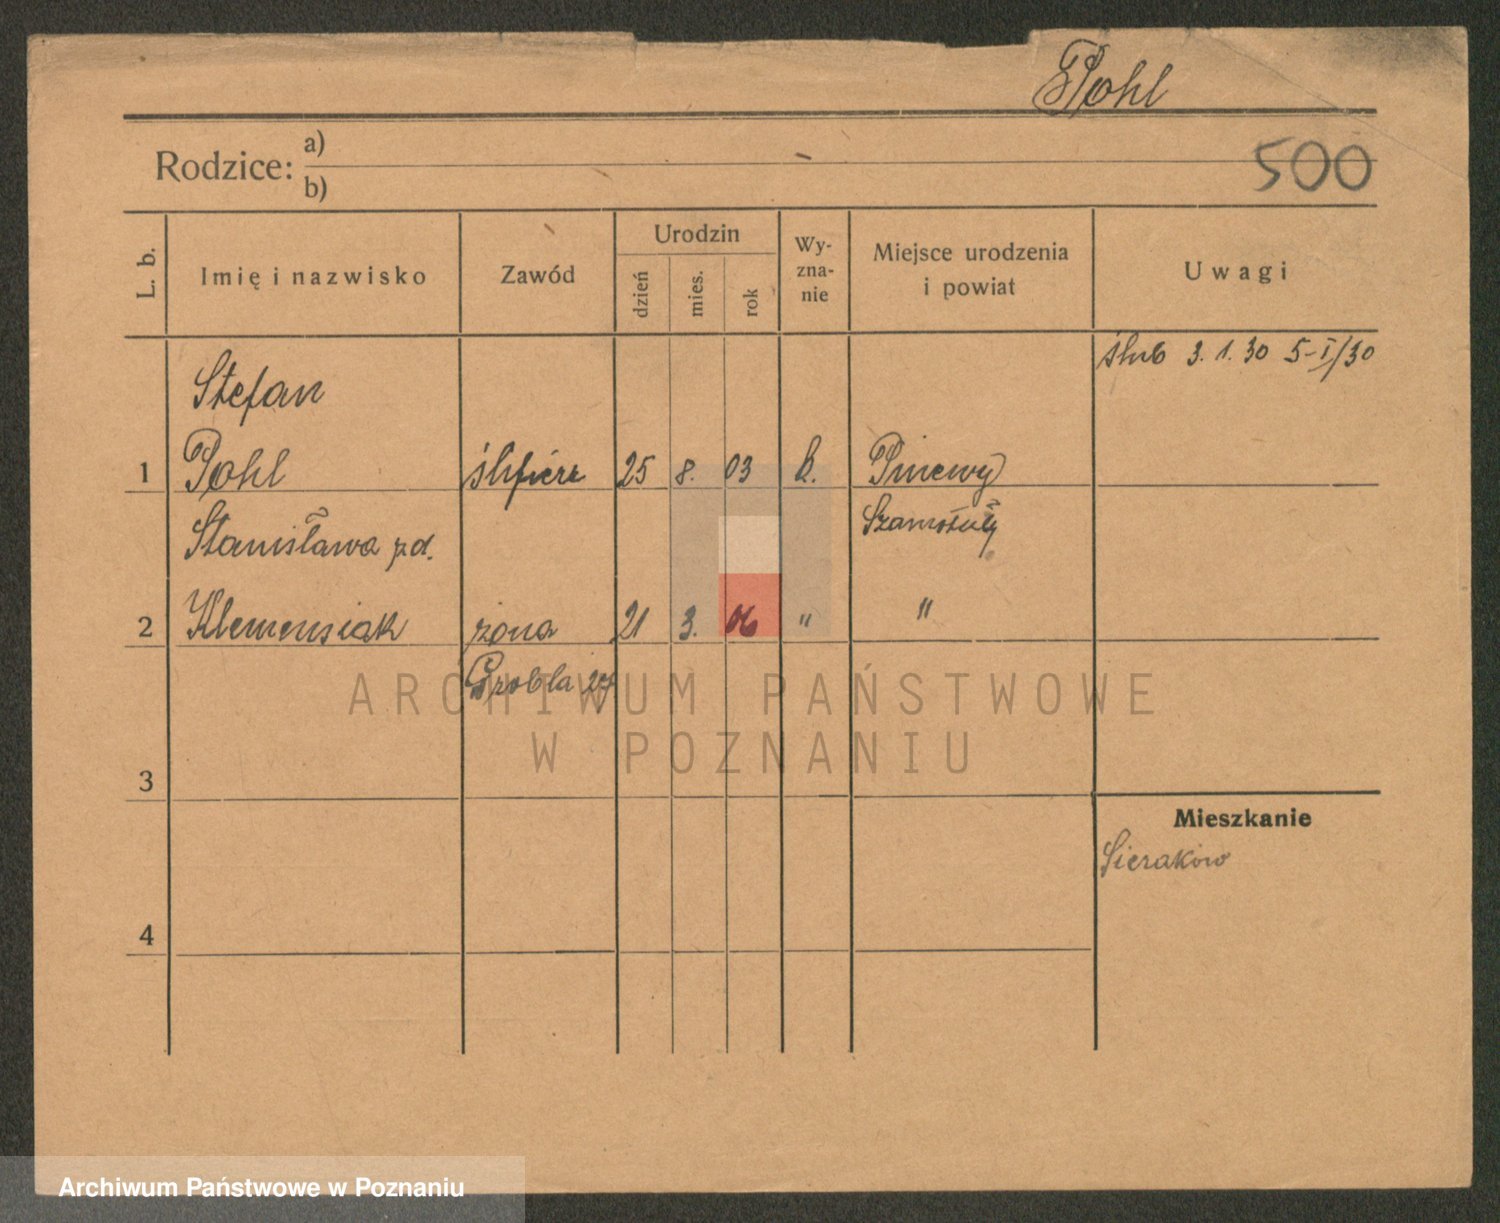 Pohl
Rodzice: a)
b)
500
L. b.
Imię i nazwisko
Zawód
Urodzin
dzień
mies.
rok
Wy-
zna-
nie
Miejsce urodzenia
i powiat
Uwagi
ślub 3. 1. 30 5-I/30
Stefan
1 Pohl ślifierz 25 8. 03 k. Pniewy
Stanisława zd. Szamotuły
2 Klemensiak żona 21 3. 06 " "
Grobla 27
ARCHIWUM PAŃSTWOWE
W POZNANIU
3
Mieszkanie
Sieraków
4
Archiwum Państwowe w Poznaniu